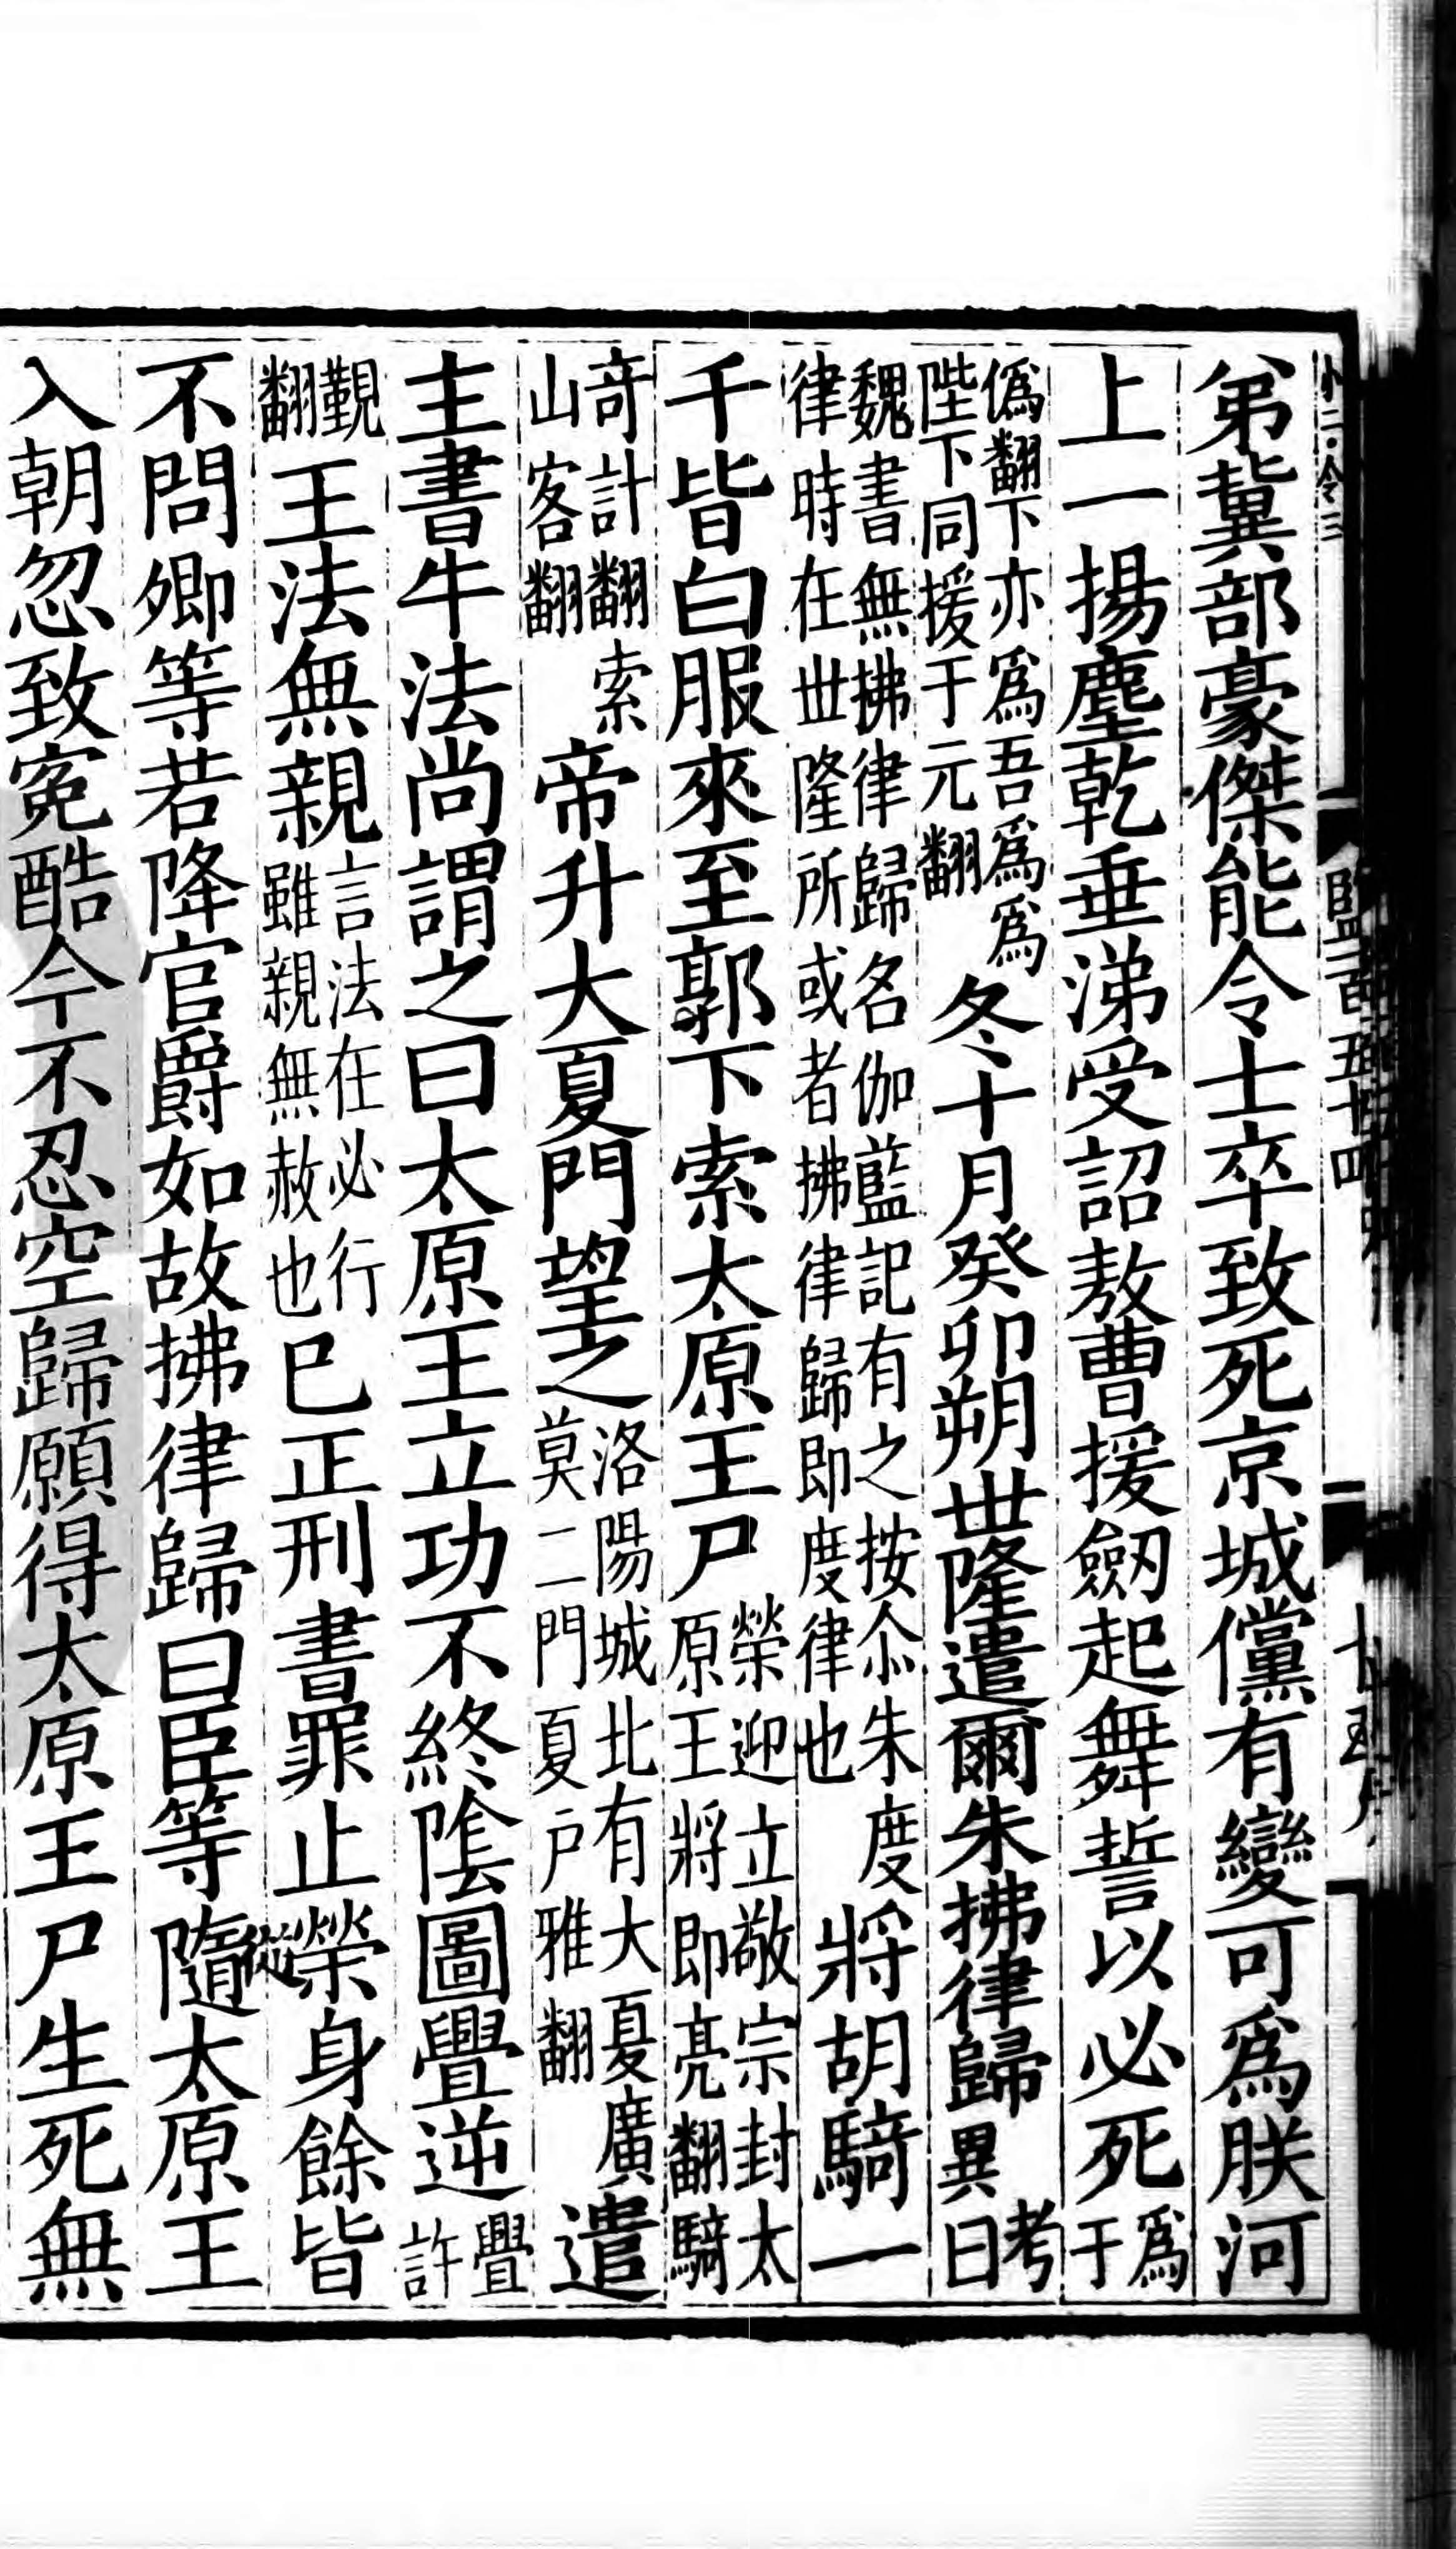 小二・令三
監百五十四
弟冀部豪傑能令士卒致死京城儻有變可爲朕河
上一揚塵乾垂涕受詔敖曹援劒起舞誓以必死爲于
僞翻下亦爲吾爲爲陛下同援于元翻冬十月癸卯朔世隆遣爾朱拂律歸考異曰
魏書無拂律歸名伽藍記有之按尒朱度律時在世隆所或者拂律歸即度律也將胡騎一
千皆白服來至郭下索太原王尸榮迎立敬宗封太原王將即亮翻騎
竒計翻索山客翻帝升大夏門望之洛陽城北有大夏廣莫二門夏戸雅翻遣
主書牛法尚謂之曰太原王立功不終陰圖舋逆舋許
覲翻王法無親言法在必行雖親無赦也已正刑書罪止榮身餘皆
不問卿等若降官爵如故拂律歸曰臣等隨從太原王
入朝忽致寃酷今不忍空歸願得太原王尸生死無